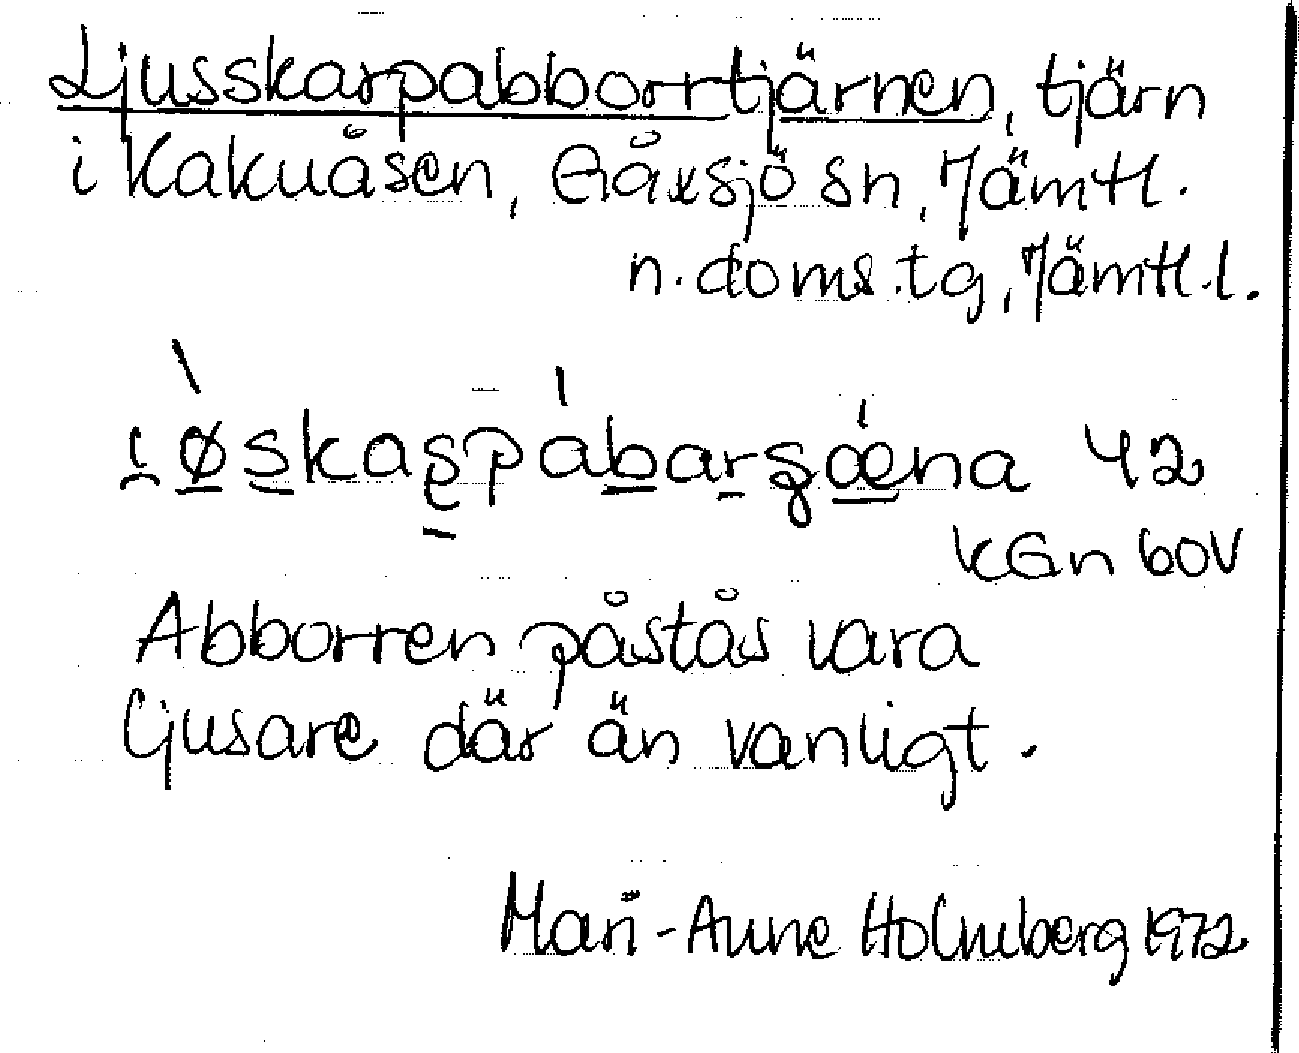 Ljusskarpabborrtjärnen, tjärn
i Kakuåsen, Gåxsjö sn, Jämtl.
n. doms.tg, Jämtl.l.
42
KGn 60V
Abborren påstås vara
ljusare där än vanligt.
Mari-Anne Holmberg 1972